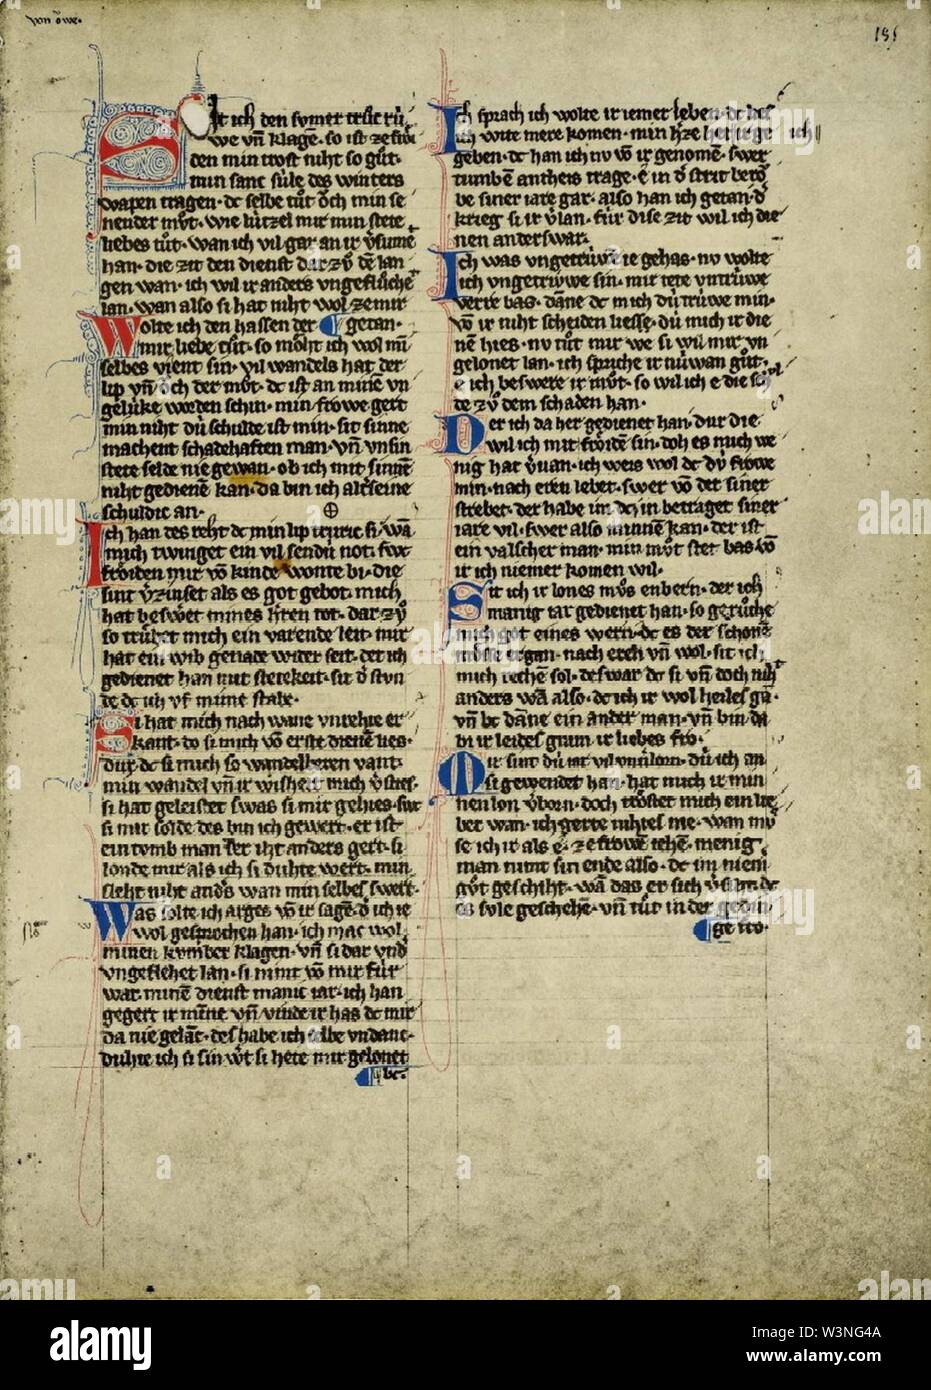 von owe.
181
Sit ich den sumer truc riu
we vñ klage · so ist ze frŏi
den min trost niht so gůt ·
min sanc süle des winters
wapen tragen · dc selbe tůt ŏch min se
nender můt · wie lützel mir min stete
liebes tůt · wan ich vil gar an ir v̾sumet
han · die zit den dienst dar zů dē lan
gen wan · ich wil ir anders ungeflůchet
lan · wan also si hat niht wol ze mir
Wolte ich den hassen der ¶ getan ·
mir leide tůt · so mŏht ich wol mī
selbes vient sin · vil wandels hat der
lip vñ ŏch der můt · dc ist an mine un
gelüke worden schin · min frowe gert
min niht dü schulde ist min · sit sinne
machent seldehaften man · vñ unsin
stete selde nie gewan · ob ich mit sinnē
niht gedienē kan · da bin ich alterseine
schuldic an ·
Ich han des reht dc min lip truric si · wā
mich twinget ein vil sendü not · swc
frŏiden mir vō kinde wonte bi · die
sint v̾zinset als es got gebot · mich
hat beswert mines h̾ren tot · dar zů
so trübet mich ein varende leit · mir
hat ein wib genade wider seit · der ich
gedienet han mit stetekeit · sit d̾ stun
de dc ich uf mime stabe ·
Si hat mich nach wane unrehte er
kant · do si mich vō erste dienē lies ·
dur dc si mich so wandelberen vant ·
min wandel vñ ir wisheit mich v̾sties ·
si hat geleistet swas si mir gehies · swc
si mir solde des bin ich gewert · er ist
ein tomb man der iht anders gert · si
londe mir als ich si duhte wert · min
sleht niht and̾s wan min selbes swert ·
Was solte ich arges vō ir sagē · d̾ ich ie
wol gesprochen han · ich mac wol
minen kumber klagen · vñ si dar und̾
ungeflehet lan · si nimt vō mir für
war minē dienst manic iar · ich han
gegert ir minne vñ vinde ir has · dc mir
da nie gelāc · des habe ich selbe undanc ·
duhte ich si sin w̾t si hete mir gelonet
¶ bc ·
Ich sprach ich wolte ir iemer leben · dc lies
ich wite mere komen · min h̾ze het ir ge
geben · dc han ich nu vō ir genomē · swer
tumbē antheis trage · ē in d̾ strit berō
be siner iare gar · also han ich getan · d̾
krieg si ir v̾lan · für dise zit wil ich die
nen anderswar ·
Ich was ungetrüwē ie gehas · nu wolte
ich ungetrüwe sin · mir tete untrüwe
verre bas · dāne dc mich dü trüwe min ·
vō ir niht scheiden liesse · dü mich ir die
nē hies · nu tůt mir we si wil mir un
gelonet lan · ich spriche ir nüwan gůt ·
e ich beswere ir můt · so wil ich e die sch
de zů dem schaden han ·
Der ich da her gedienet han · dur die
wil ich mit frŏidē sin · doh es mich we
nig hat v̾van · ich weis wol dc dü frowe
min · nach eren lebet · swer vō der siner
strebet · der habe im dc · in betraget siner
iare vil · swer also minnē kan · der ist
ein valscher man · min můt stet bas · vō
ir ich niemer komen wil ·
Sit ich ir lones můs enbern · der ich
manig iar gedienet han · so gerůche
mich got eines wern · dc es der schonē
můsse ergan · nach eren vñ wol · sit ich
mich rechē sol · deswar dc si · vñ doch niht
anders wā also · dc ich ir wol heiles gā ·
vñ bc dāne ein ander man · vñ bin da
bi ir leides gram ir liebes fro ·
Mir sint dü iar vil unv̾lorn · dü ich an
si gewendet han · hat mich ir min
nen lon v̾born · doch trŏstet mich ein lie
ber wan · ich gerte nihtes me · wan mů
se ich ir als e · ze frowē iehē · menig
man nimt sin ende also · dc im niem̄
gůt geschiht · wā das er sich v̾siht · dc
es süle geschehē · vñ tůt in der gedin
¶ ge fro ·
alamy
Image ID: W3NG4A
www.alamy.com